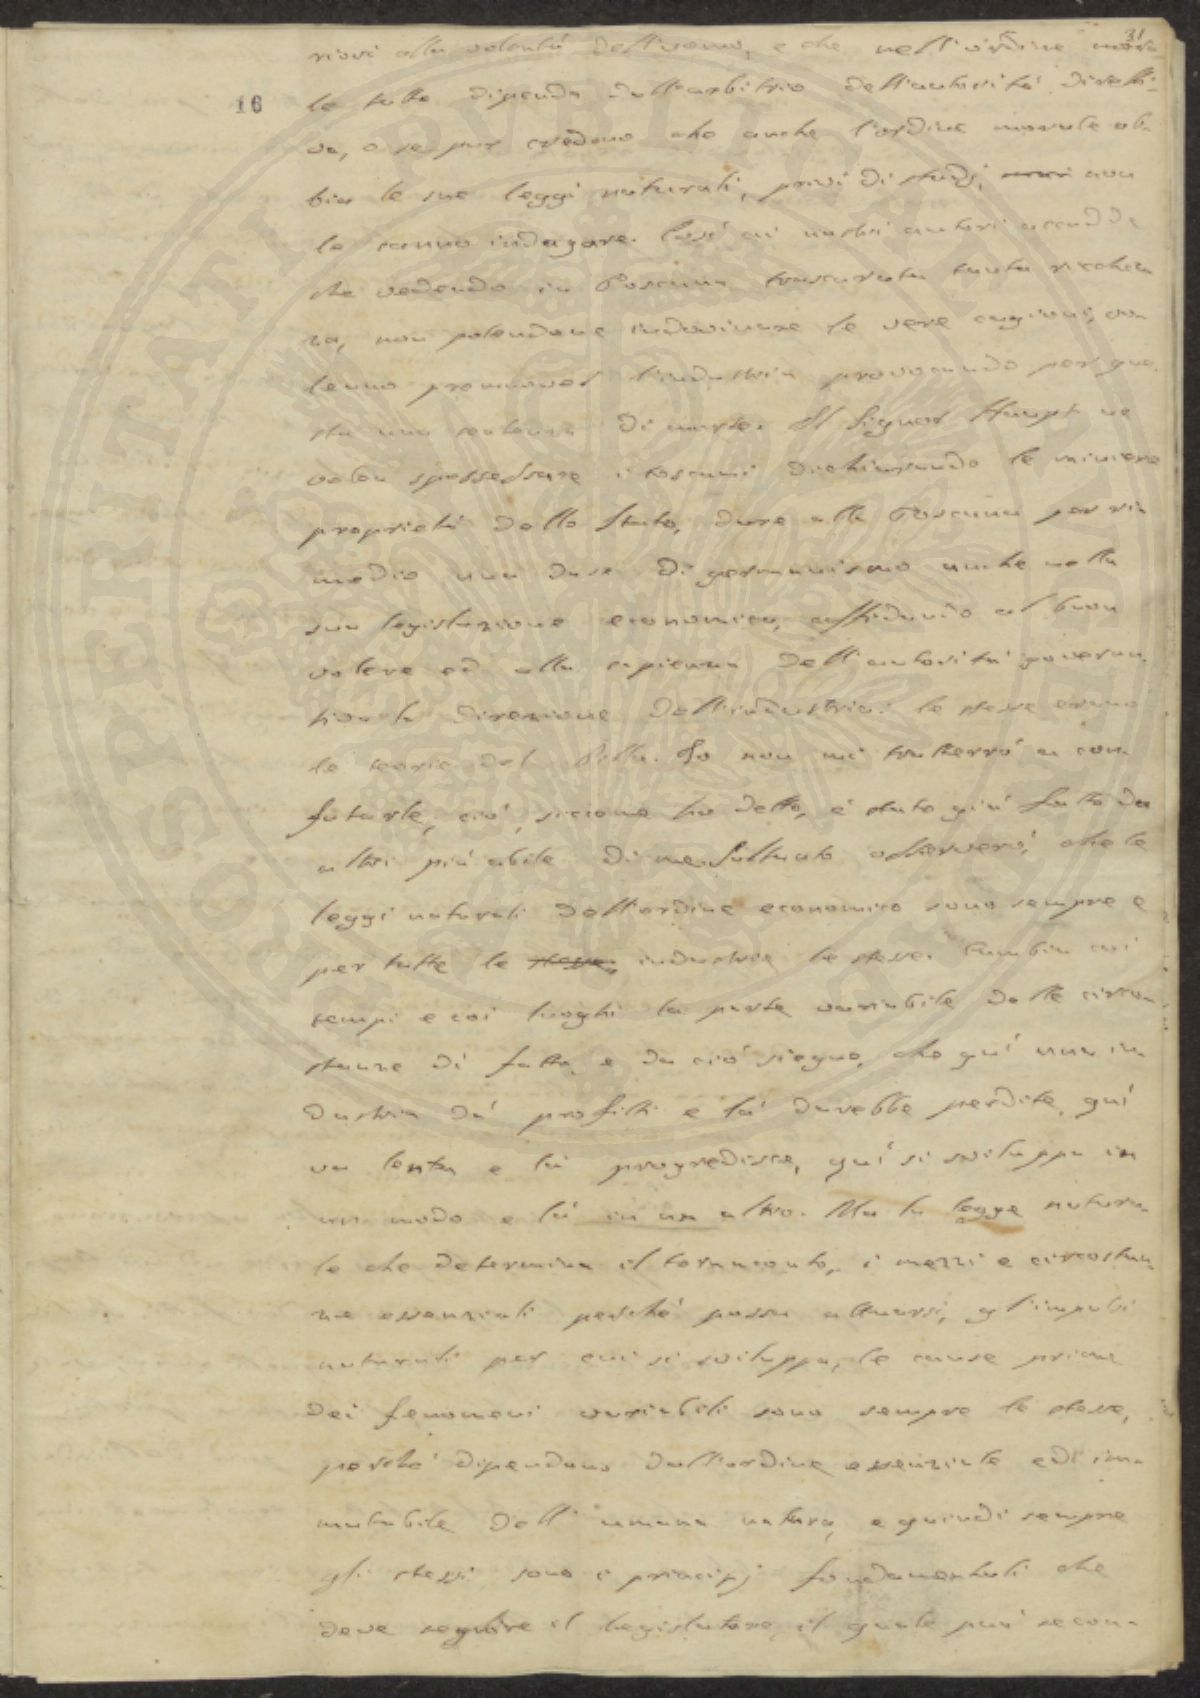 31
riori alla volontà dell'uomo, e che nell'ordine mora-
16
le tutto dipenda dall'arbitrio dell'autorità diretti-
va, o se pur credono che anche l'ordine morale ab-
bia le sue leggi naturali, privi di studj, non
le sanno indagare. Così ai nostri autori accadde
che vedendo in Toscana trascurata tanta ricchez-
za, non potendone indovinare le vere cagioni, vol-
lenno promuover l'industria provocando per que-
sta una sentenza di morte. Il Signor Haupt ne
volea spossessare i toscani dichiarando le miniere
proprietà dello Stato, dare alla Toscana per ri-
medio una dose di germanismo anche nella
sua legislazione economica, affidando al buon
volere ed alla sapienza dell'autorità governa-
tiva la direzione dell'industria: le stesse erano
le teorie del Pilla. Io non mi tratterrò a con-
futarle, ciò, siccome ho detto, è stato già fatto da
altri più abile di me. Soltanto osserverò, che le
leggi naturali dell'ordine economico sono sempre e
per tutte le stesse, industrie le stesse. Cambia coi
tempi e coi luoghi la parte variabile delle circo-
stanze di fatto, e da ciò siegue, che quì una in-
dustria dà profitti e là darebbe perdite, quì
va lenta e là progredisce, quì si sviluppa in
un modo e là in un altro. Ma la legge natura-
le che determina il tornaconto, i mezzi e circostan-
ze essenziali perchè possa attuarsi, gl'impulsi
naturali per cui si sviluppa, le cause prime
dei fenomeni variabili sono sempre le stesse,
perchè dipendono dall'ordine essenziale ed im-
mutabile dell'umana natura, e quindi sempre
gli stessi sono i principj fondamentali che
deve seguire il legislatore, il quale può secon-